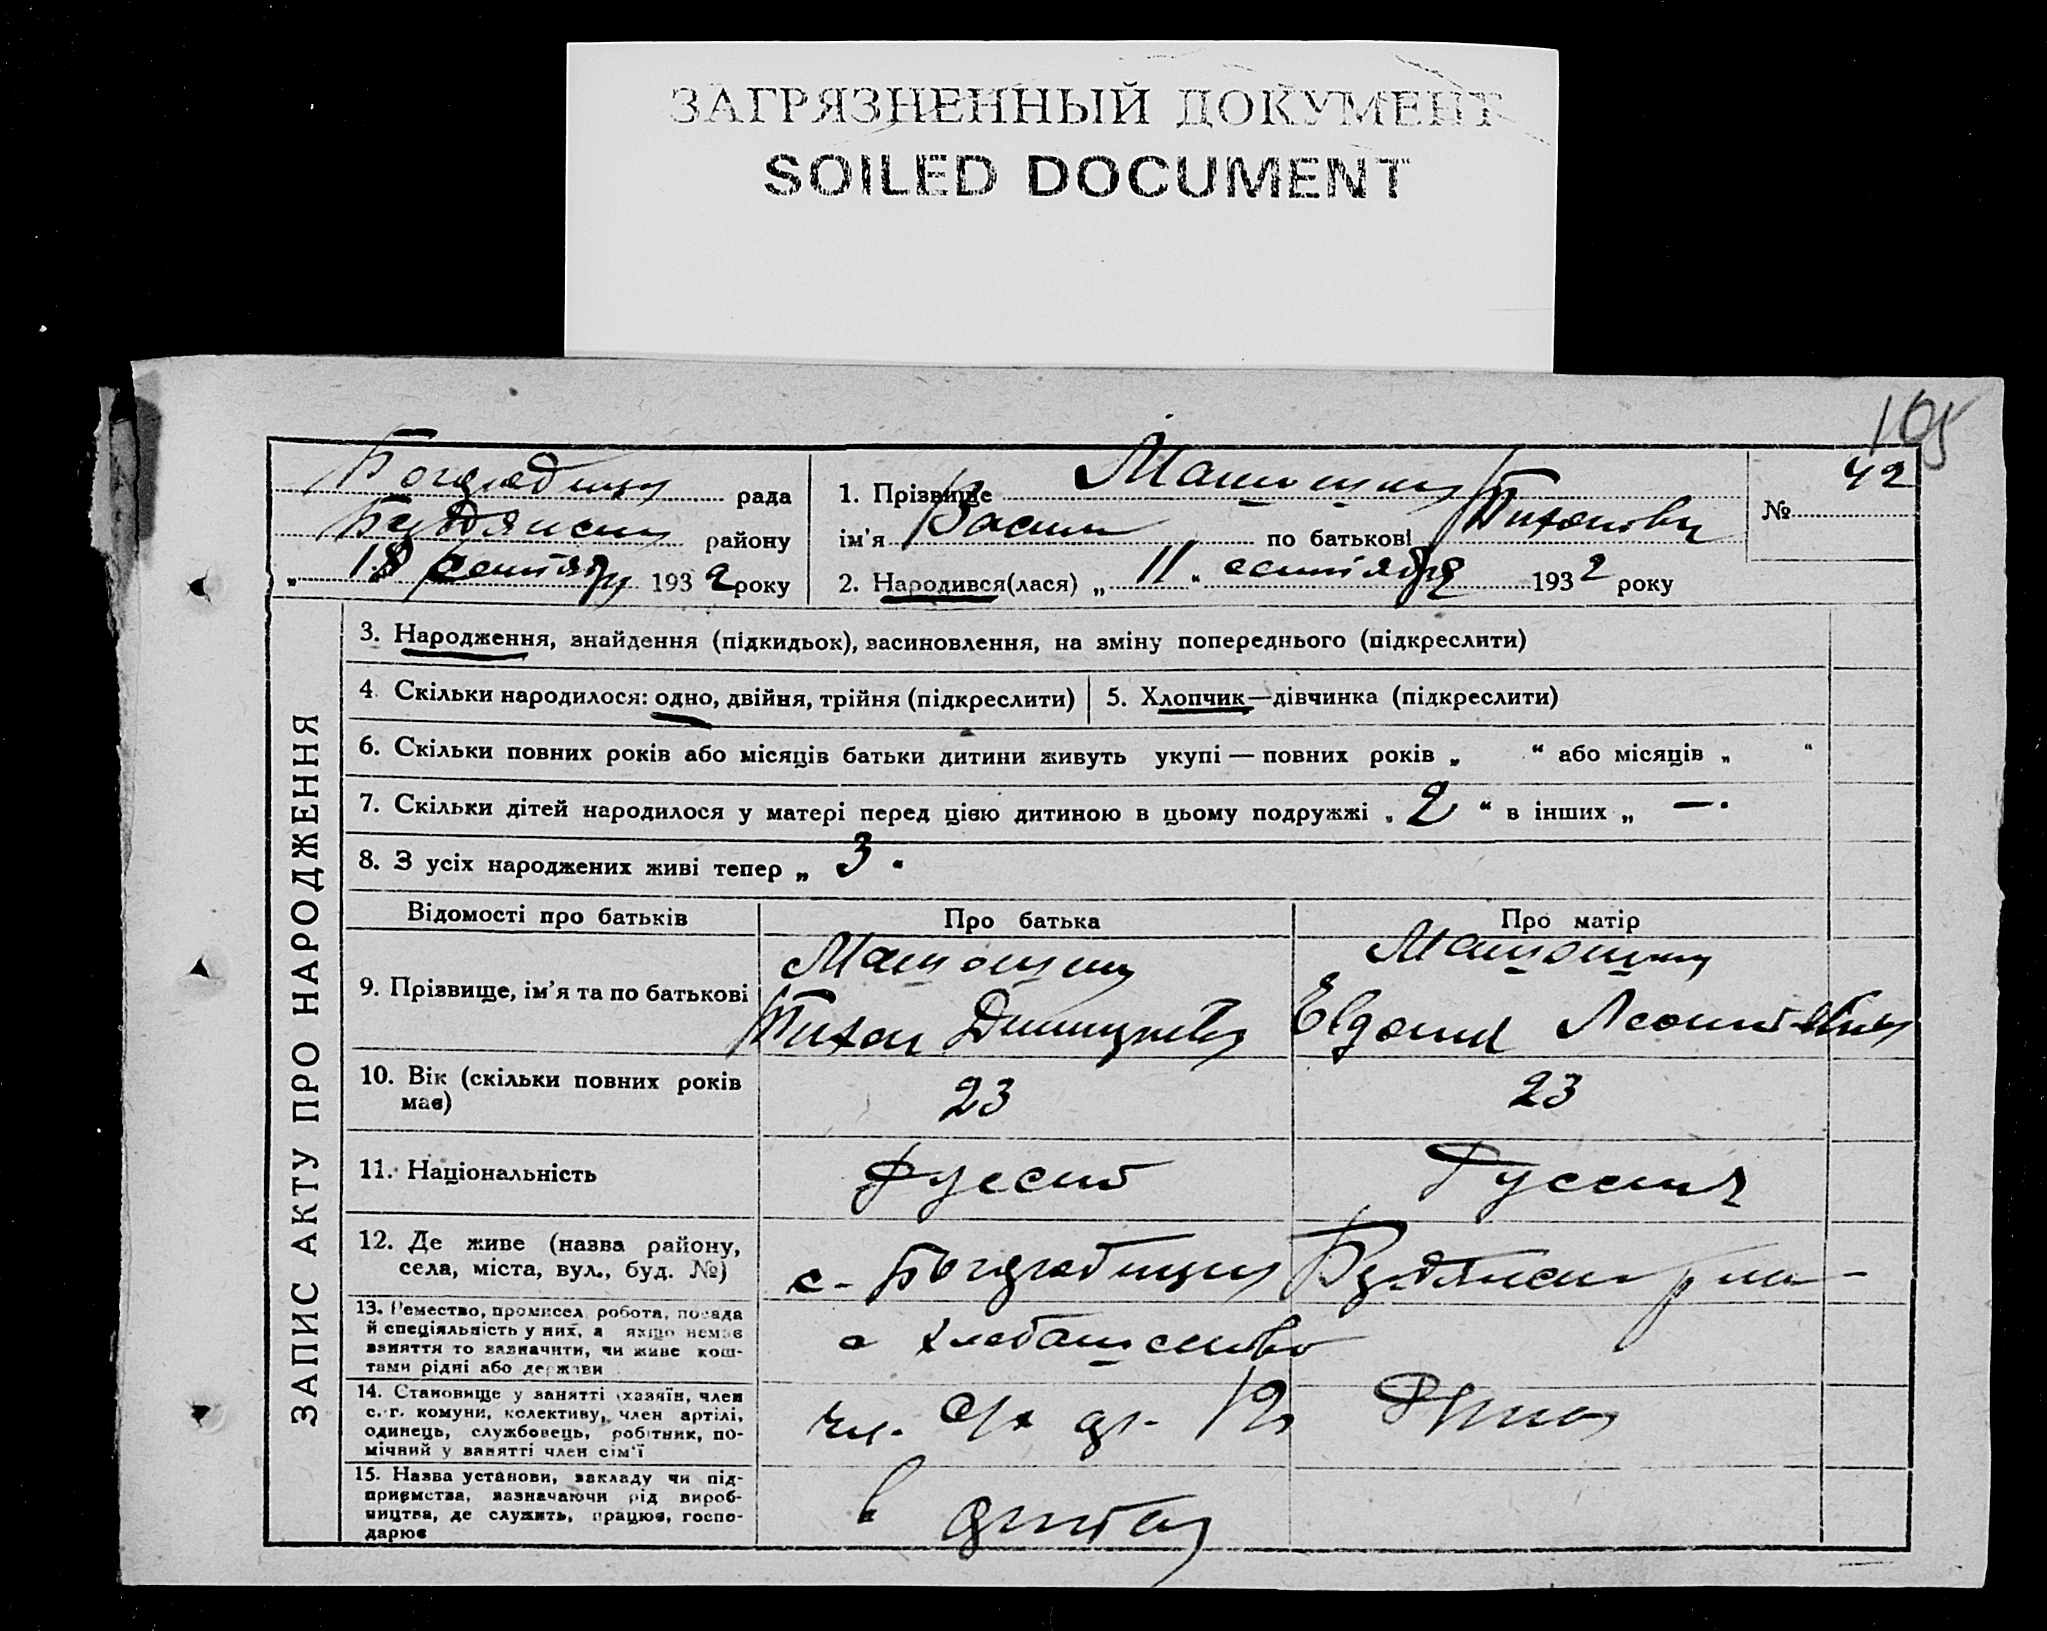 ЗАГРЯЗНЕННЫЙ ДОКУМЕНТ
SOILED DOCUMENT
105
ЗАПИС АКТУ ПРО НАРОДЖЕННЯ
рада
району
18 сентября 1932 року
1. Прізвище
ім'я Васили по батькові Тихонович
№ 42
2. Народився(лася) „ 11 " сентября 1932 року
3. Народження, знайдення (підкидьок), васиновлення, на зміну попереднього (підкреслити)
4. Скільки народилося: одно, двійня, трійня (підкреслити)
5. Хлопчик—дівчинка (підкреслити)
6. Скільки повних років або місяців батьки дитини живуть укупі — повних років „ " або місяців „ "
7. Скільки дітей народилося у матері перед цією дитиною в цьому подружжі „ 2 " в інших „ —.
8. З усіх народжених живі тепер „ 3.
Відомості про батьків
Про батька
Про матір
9. Прізвище, ім'я та по батькові
Тихон
Евдокия
10. Вік (скільки повних років
має)
23
23
11. Національність
Русский
Русская
12. Де живе (назва району,
села, міста, вул., буд. №)
с.
13. Ремество, промисел, робота, посада
й спеціяльність у них, а якщо немає
заняття то зазначити, чи живе кош-
тами рідні або держави
14. Становище у занятті (хазяїн, член
с.-г. комуни, колективу, член артілі,
одинець, службовець, робітник, по-
мічний у занятті член сім'ї
чл. с/х
15. Назва установи, закладу чи під-
приємства, зазначаючи рід вироб-
ництва, де служить, працює, госпо-
дарює
в